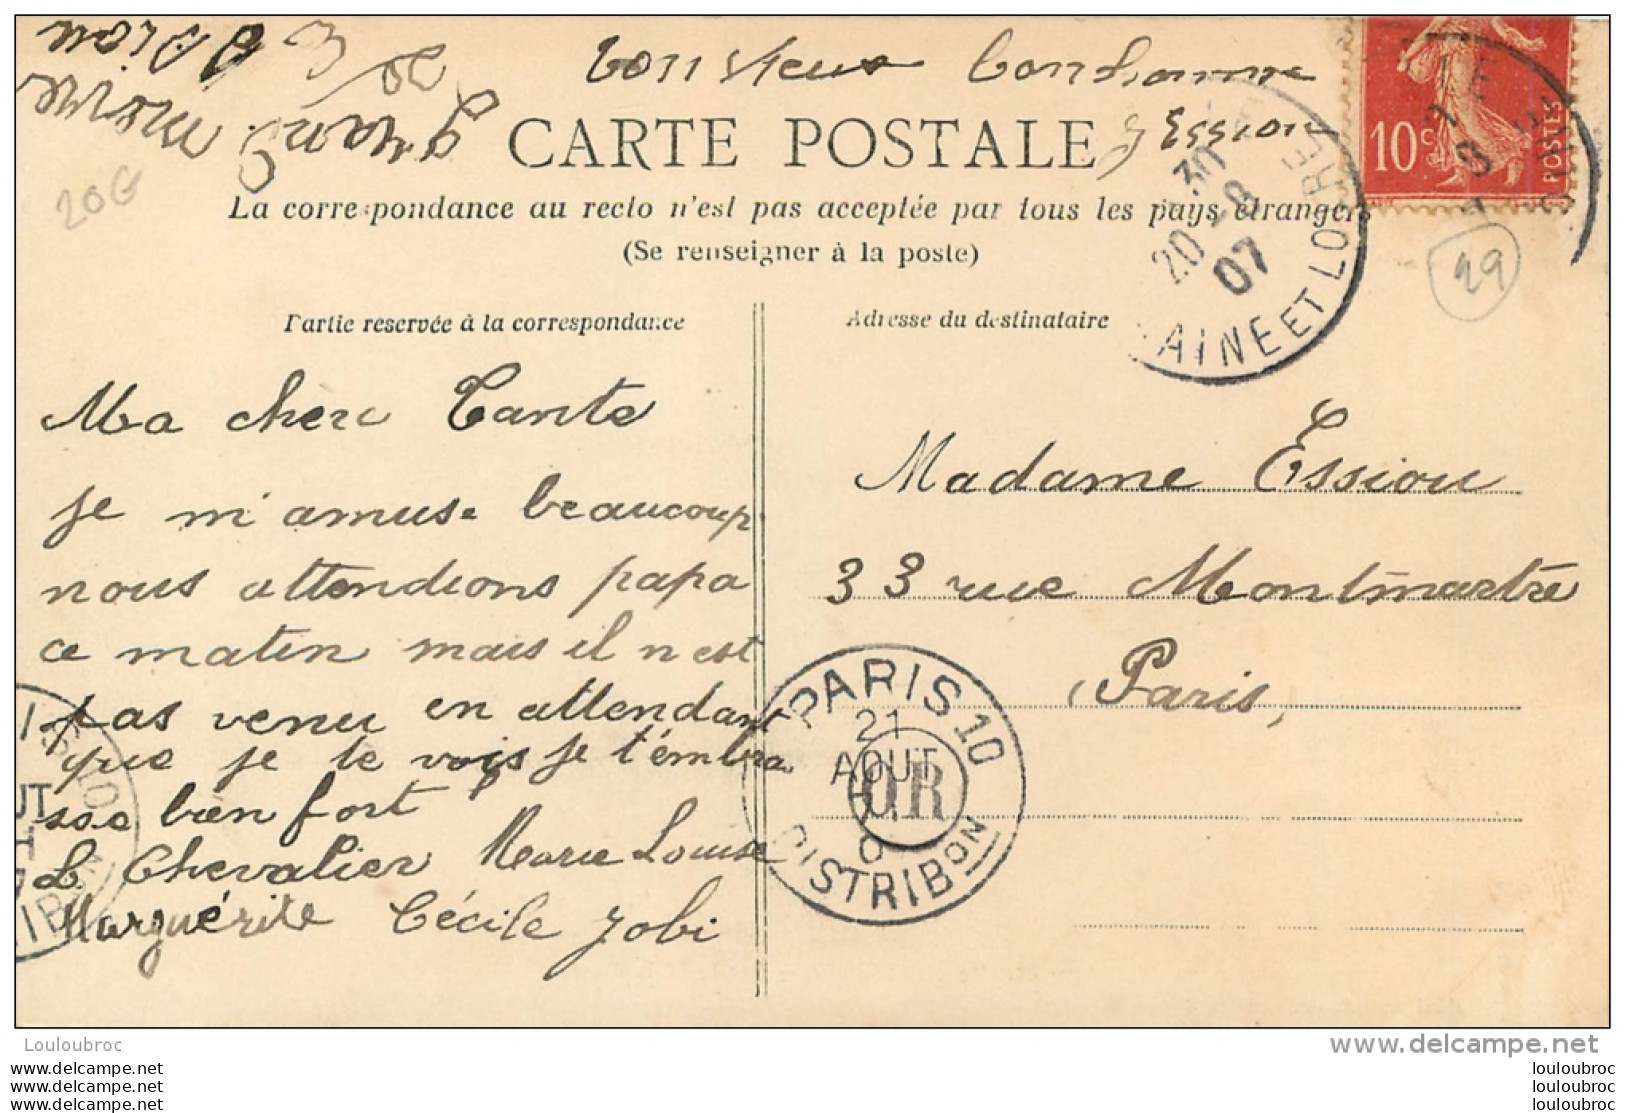 ton vieux bonhomme
J Essiou
20G
CARTE POSTALE
La correspondance au recto n'est pas acceptée par tous les pays étrangers
(Se renseigner à la poste)
10c
POSTES
30
20-8
07
AINE ET LOIRE
29
Partie reservée à la correspondance
Adresse du destinataire
Ma chere Tante
je m'amuse beaucoup
nous attendions papa
ce matin mais il n'est
pas venu en attendant
que je te vois je t'embra
sse bien fort
L. Chevalier Marie Louise
Marguérite Cécile Jobi
Madame Essiou
33 rue Montmartre
Paris
PARIS 10
21
AOUT
OR
DISTRIBON
Louloubroc
www.delcampe.net
louloubroc
louloubroc
louloubroc
louloubroc
louloubroc
louloubroc